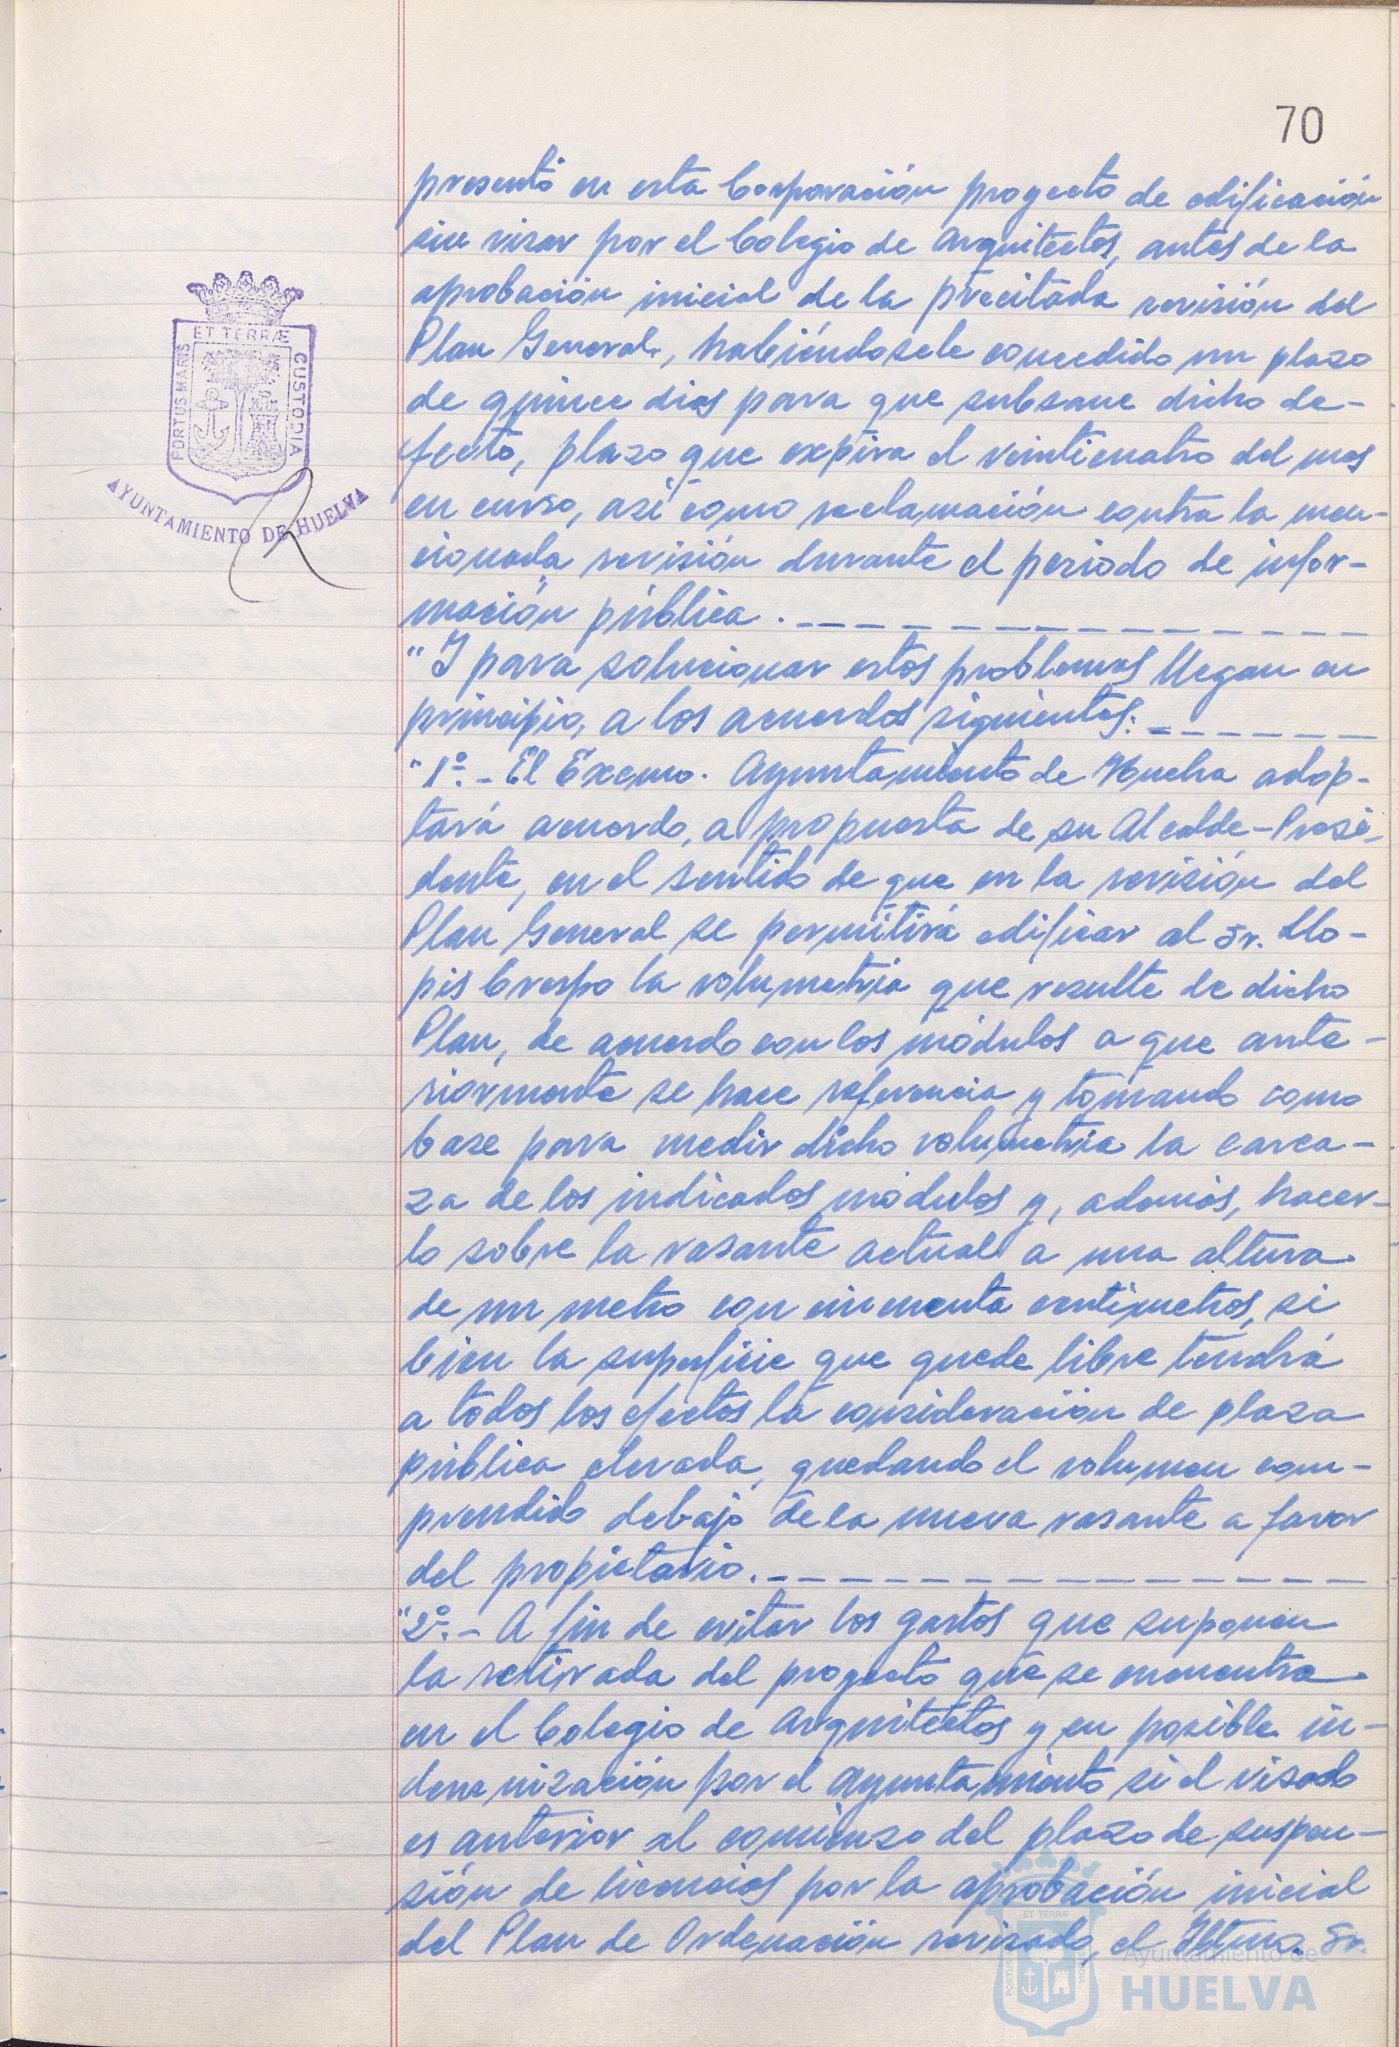 70
presentó en esta Corporación proyecto de edificación
sin visar por el Colegio de Arquitectos, antes de la
aprobación inicial de la precitada revisión del
Plan General, habiéndosele concedido un plazo
de quince dias para que subsane dicho de-
fecto, plazo que expira el veinticuatro del mes
en curso, así como reclamación contra la men-
cionada revisión durante el periodo de infor-
mación pública.
"Y para solucionar estos problemas llegan en
principio, a los acuerdos siguientes:
"1º.- El Excmo. Ayuntamiento de Huelva adop-
tará acuerdo, a propuesta de su Alcalde-Presi-
dente, en el sentido de que en la revisión del
Plan General se permitirá edificar al Sr. Llo-
pis Crespo la volumetria que resulte de dicho
Plan, de acuerdo con los módulos a que ante-
riormente se hace referencia y tomando como
base para medir dicha volumetria la carca-
za de los indicados módulos y, además, hacer-
lo sobre la rasante actual a una altura
de un metro con cincuenta centimetros, si
bien la superficie que quede libre tendrá
a todos los efectos la consideración de plaza
pública elevada, quedando el volumen com-
prendido debajo de la nueva rasante a favor
del propietario.
"2º.- A fin de evitar los gastos que suponen
la retirada del proyecto que se encuentra
en el Colegio de Arquitectos y en posible in-
demnización por el Ayuntamiento si el visado
es anterior al comienzo del plazo de suspen-
sión de licencias por la aprobación inicial
del Plan de Ordenación revisado, el Iltmo. Sr.
PORTUS MARIS
ET TERRÆ
CUSTODIA
AYUNTAMIENTO DE HUELVA
Ayuntamiento de
HUELVA